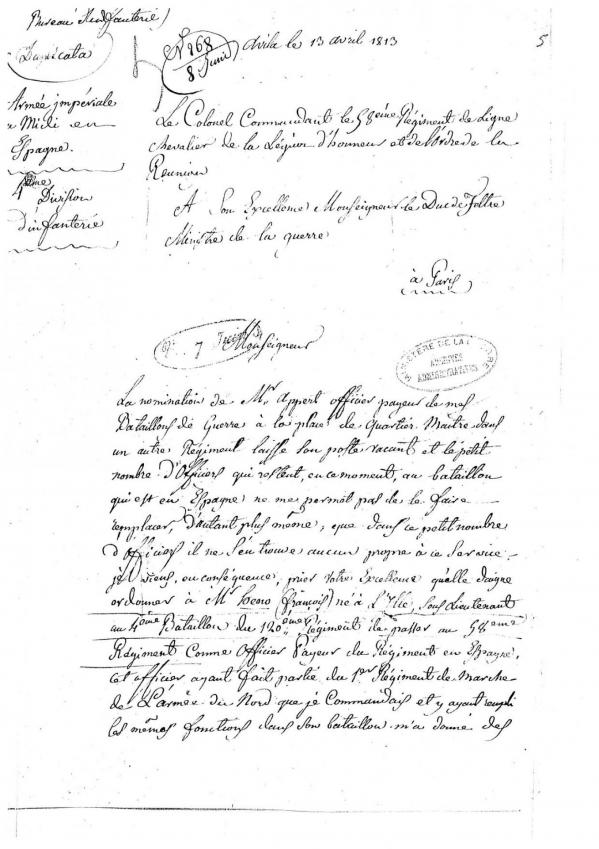 Bureau d'Infanterie
Duplicata
N° 968
8 Juin
Avila le 13 avril 1813
5
Armée impériale
du Midi en
Espagne.
4ème
Division
d'infanterie
Le Colonel Commandant le 58ème Régiment de Ligne
Chevalier de la Légion d'honneur et de l'Ordre de la
Réunion
A Son Excellence Monseigneur le Duc de Feltre
Ministre de la guerre
à Paris
7
Monseigneur
MINISTÈRE DE LA GUERRE
ARCHIVES
ADMINISTRATIVES
La nomination de Mr Appert officier payeur de mes
Bataillons de Guerre à la place de Quartier Maître dans
un autre Régiment laisse son poste vacant et le petit
nombre d'Officiers qui restent, en ce moment, au bataillon
qui est en Espagne ne me permet pas de le faire
remplacer, d'autant plus même, que dans ce petit nombre
d'officiers il ne s'en trouve aucun propre à ce Service
je viens, en conséquence, prier votre Excellence qu'elle daigne
ordonner à Mr (françois) né à L', Sous lieutenant
au 4ème Bataillon du 120ème Régiment de passer au 58eme
Régiment Comme Officier Payeur du Régiment en Espagne,
cet officier ayant fait partie du 1er Régiment de Marche
de L'armée du Nord que je Commandais et y ayant rempli
les mêmes fonctions dans son bataillon m'a donné des